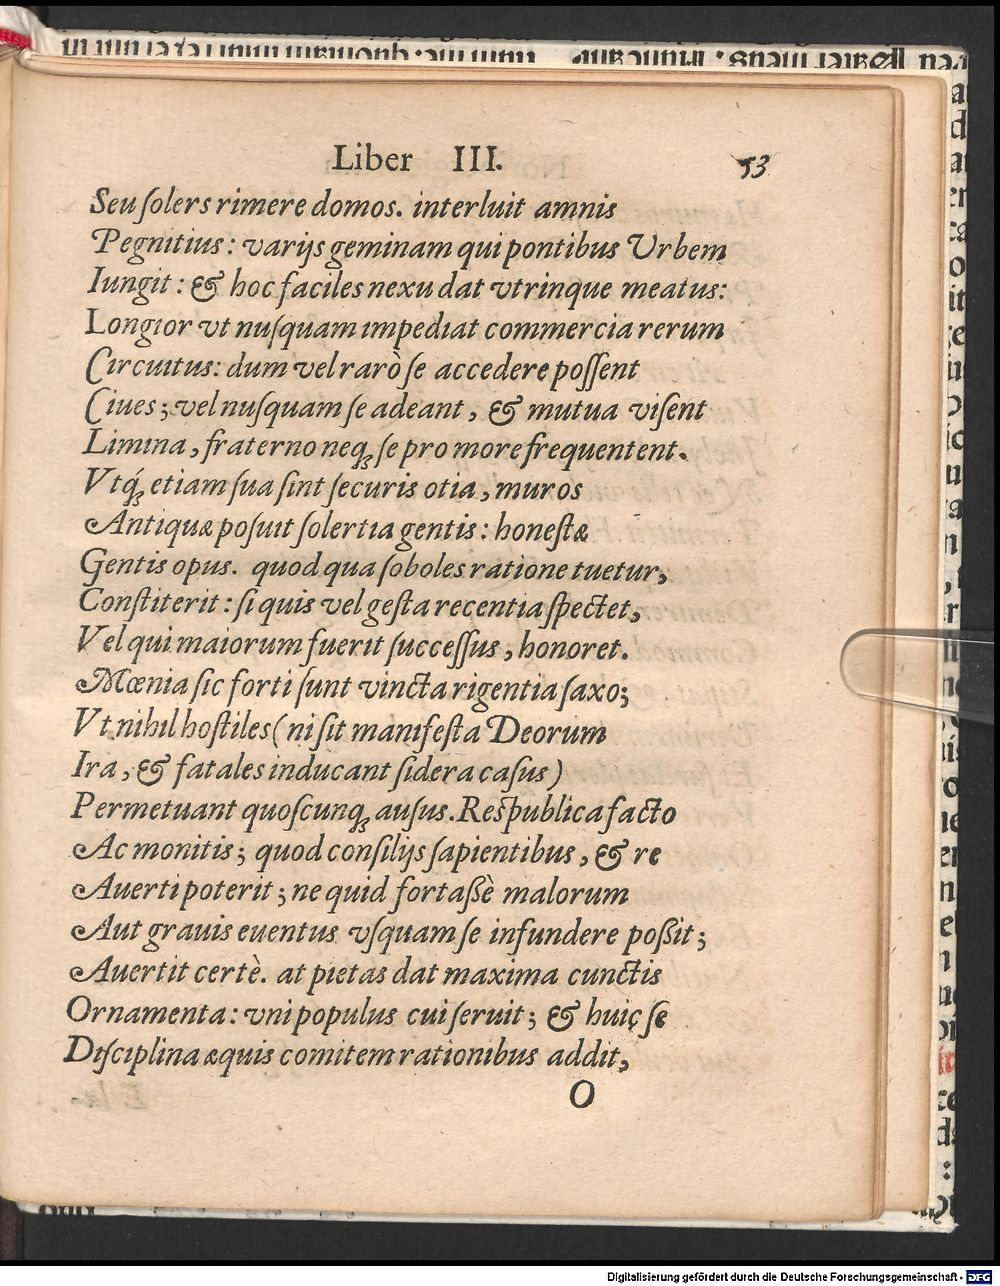 Liber III. 53
Seu ſolers rimere domos. interluit amnis
Pegnitius: varijs geminam qui pontibus Vrbem
Iungit: & hoc faciles nexu dat vtrinque meatus:
Longior vt nuſquam impediat commercia rerum
Circuitus: dum vel rarò ſe accedere poſſent
Ciues; vel nuſquam ſe adeant, & mutua viſent
Limina, fraterno neqꝫ ſe pro more frequentent.
Vtqꝫ́ etiam ſua ſint ſecuris otia, muros
Antiquæ poſuit ſolertia gentis: honeſtæ
Gentis opus. quod qua ſoboles ratione tuetur,
Conſtiterit: ſi quis vel geſta recentia ſpectet,
Vel qui maiorum fuerit ſucceſſus, honoret.
Mœnia ſic forti ſunt vincta rigentia ſaxo;
Vt nihil hoſtiles (ni ſit manifeſta Deorum
Ira, & fatales inducant ſidera caſus)
Permetuant quoſcunqꝫ auſus. Reſpublica facto
Ac monitis; quod conſilijs ſapientibus, & re
Auerti poterit; ne quid fortaßè malorum
Aut grauis euentus vſquam ſe infundere poßit;
Auertit certè. at pietas dat maxima cunctis
Ornamenta: vni populus cui ſeruit; & huic ſe
Diſciplina æquis comitem rationibus addit,
O
Digitalisierung gefördert durch die Deutsche Forschungsgemeinschaft - DFG